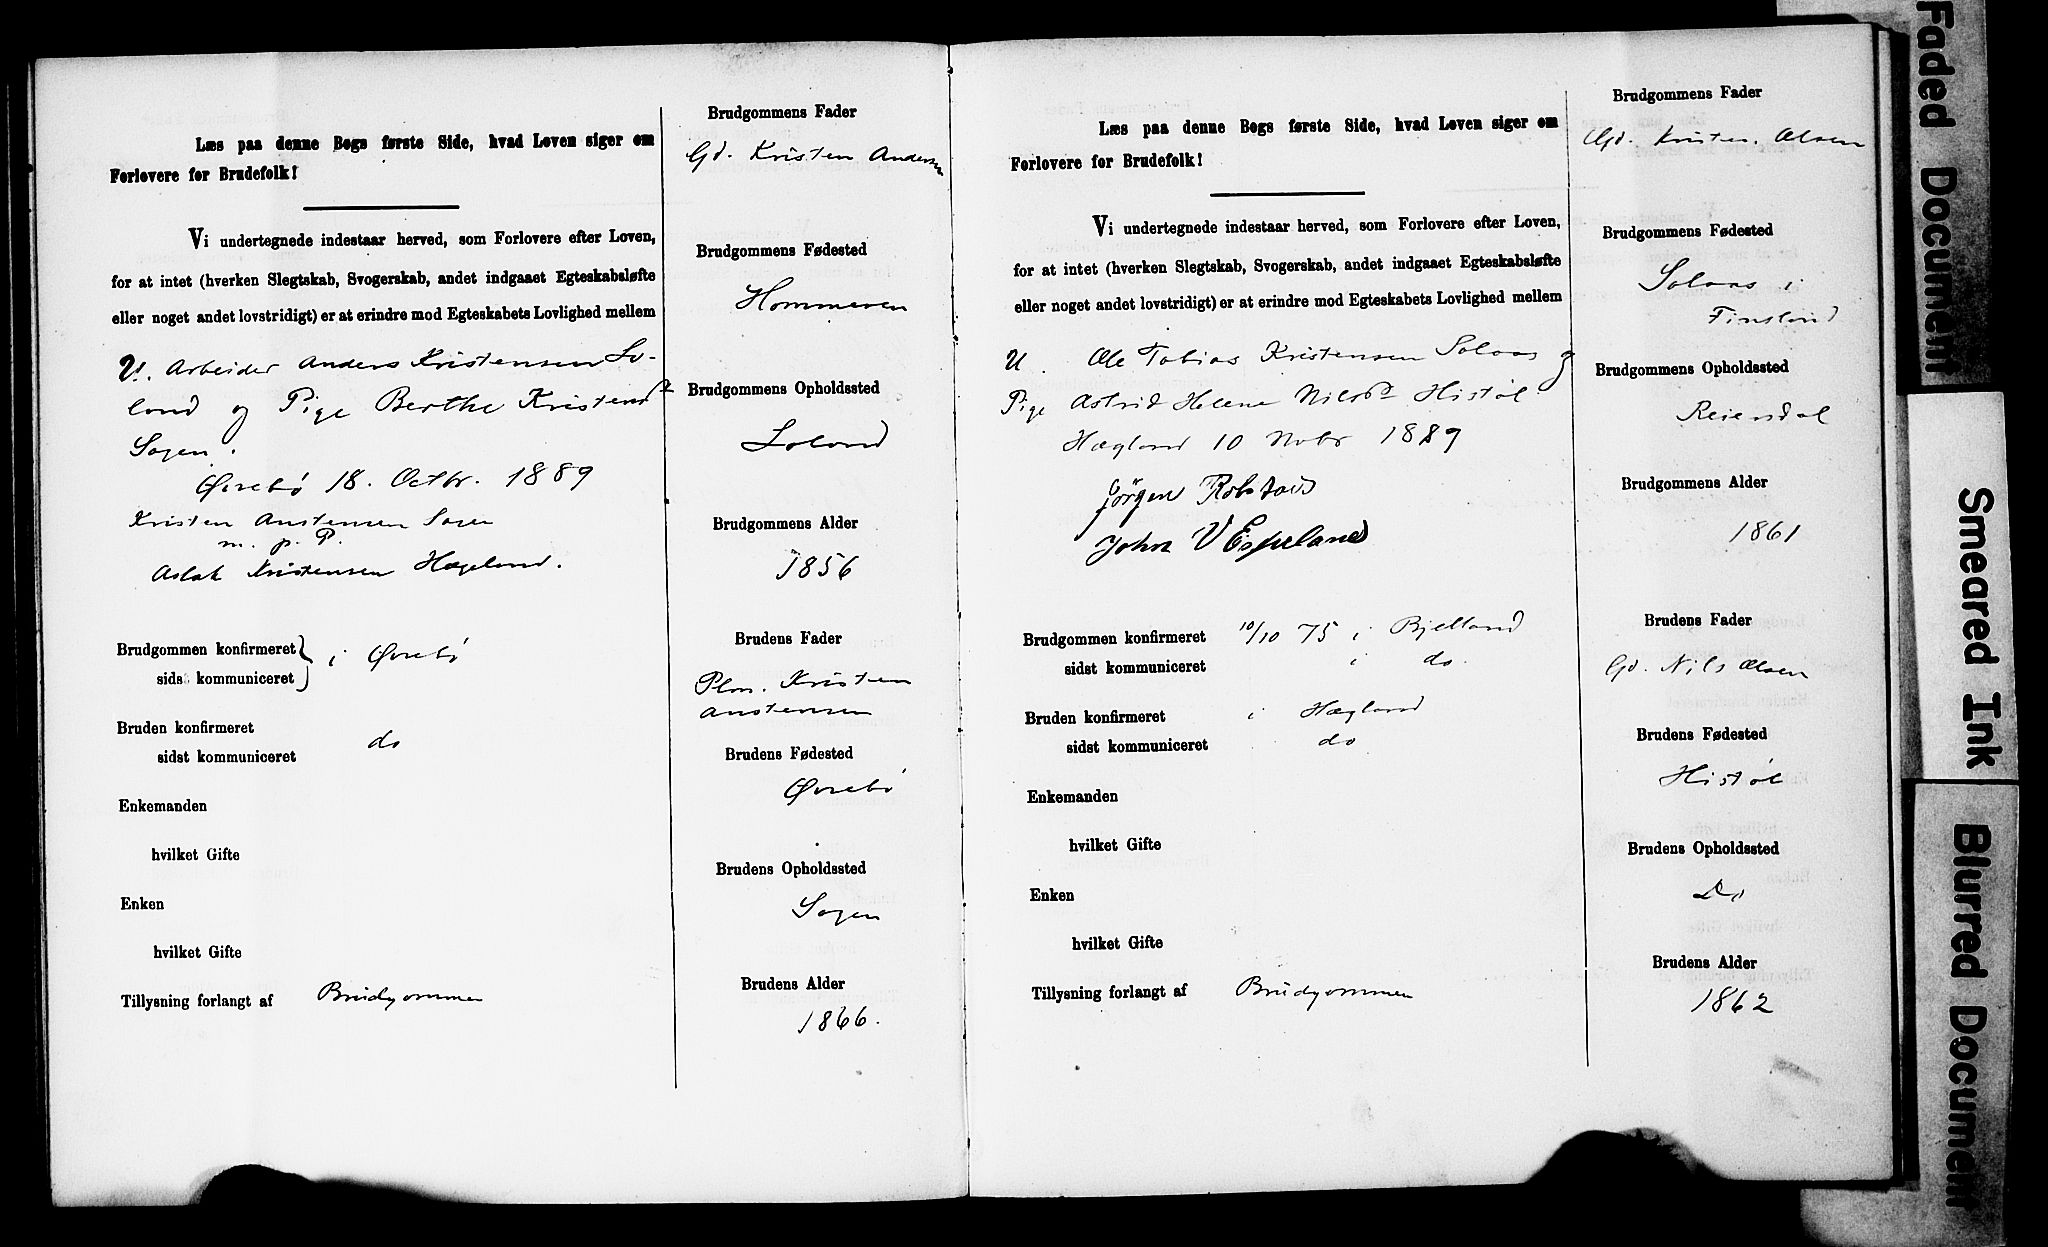 Læs paa denne Bogs første Side, hvad Loven siger om
Forlovere for Brudefolk!
Vi undertegnede indestaar herved, som Forlovere efter Loven,
for at intet (hverken Slegtskab, Svogerskab, andet indgaaet Egteskabsløfte
eller noget andet lovstridigt) er at erindre mod Egteskabets Lovlighed mellem
U. Arbeider Anders Kristensen Lo-
land og Pige Berthe Kristensd
Sagen.
Øvrebø 18. Octbr. 1889
Kristen Anstensen Sagen
m. p. P.
Aslak Kristensen Hægeland.
Brudgommen konfirmeret
sidst kommuniceret } i Øvrebø
Bruden konfirmeret
sidst kommuniceret do
Enkemanden
hvilket Gifte
Enken
hvilket Gifte
Tillysning forlangt af Brudgommen
Brudgommens Fader
Gd. Kristen Andersen
Brudgommens Fødested
Hommeren
Brudgommens Opholdssted
Loland
Brudgommens Alder
1856
Brudens Fader
Plm. Kristen
Anstensen
Brudens Fødested
Øvrebø
Brudens Opholdssted
Sagen
Brudens Alder
1866.
Læs paa denne Bogs første Side, hvad Loven siger om
Forlovere for Brudefolk!
Vi undertegnede indestaar herved, som Forlovere efter Loven,
for at intet (hverken Slegtskab, Svogerskab, andet indgaaet Egteskabsløfte
eller noget andet lovstridigt) er at erindre mod Egteskabets Lovlighed mellem
U. Ole Tobias Kristensen Solaas og
Pige Astrid Helene Nilsd Histøl
Hægland 10 Novbr 1889
Jörgen Robstad
John V Espeland
Brudgommen konfirmeret 10/10 75 i Bjelland
sidst kommuniceret i do.
Bruden konfirmeret i Hægland
sidst kommuniceret do
Enkemanden
hvilket Gifte
Enken
hvilket Gifte
Tillysning forlangt af Brudgommen
Brudgommens Fader
Gd. Kristen Olsen
Brudgommens Fødested
Solaas i
Finsland
Brudgommens Opholdssted
Reiersdal
Brudgommens Alder
1861
Brudens Fader
Gd. Nils Olsen
Brudens Fødested
Histøl
Brudens Opholdssted
Do
Brudens Alder
1862
Faded Document
Smeared Ink
Blurred Document